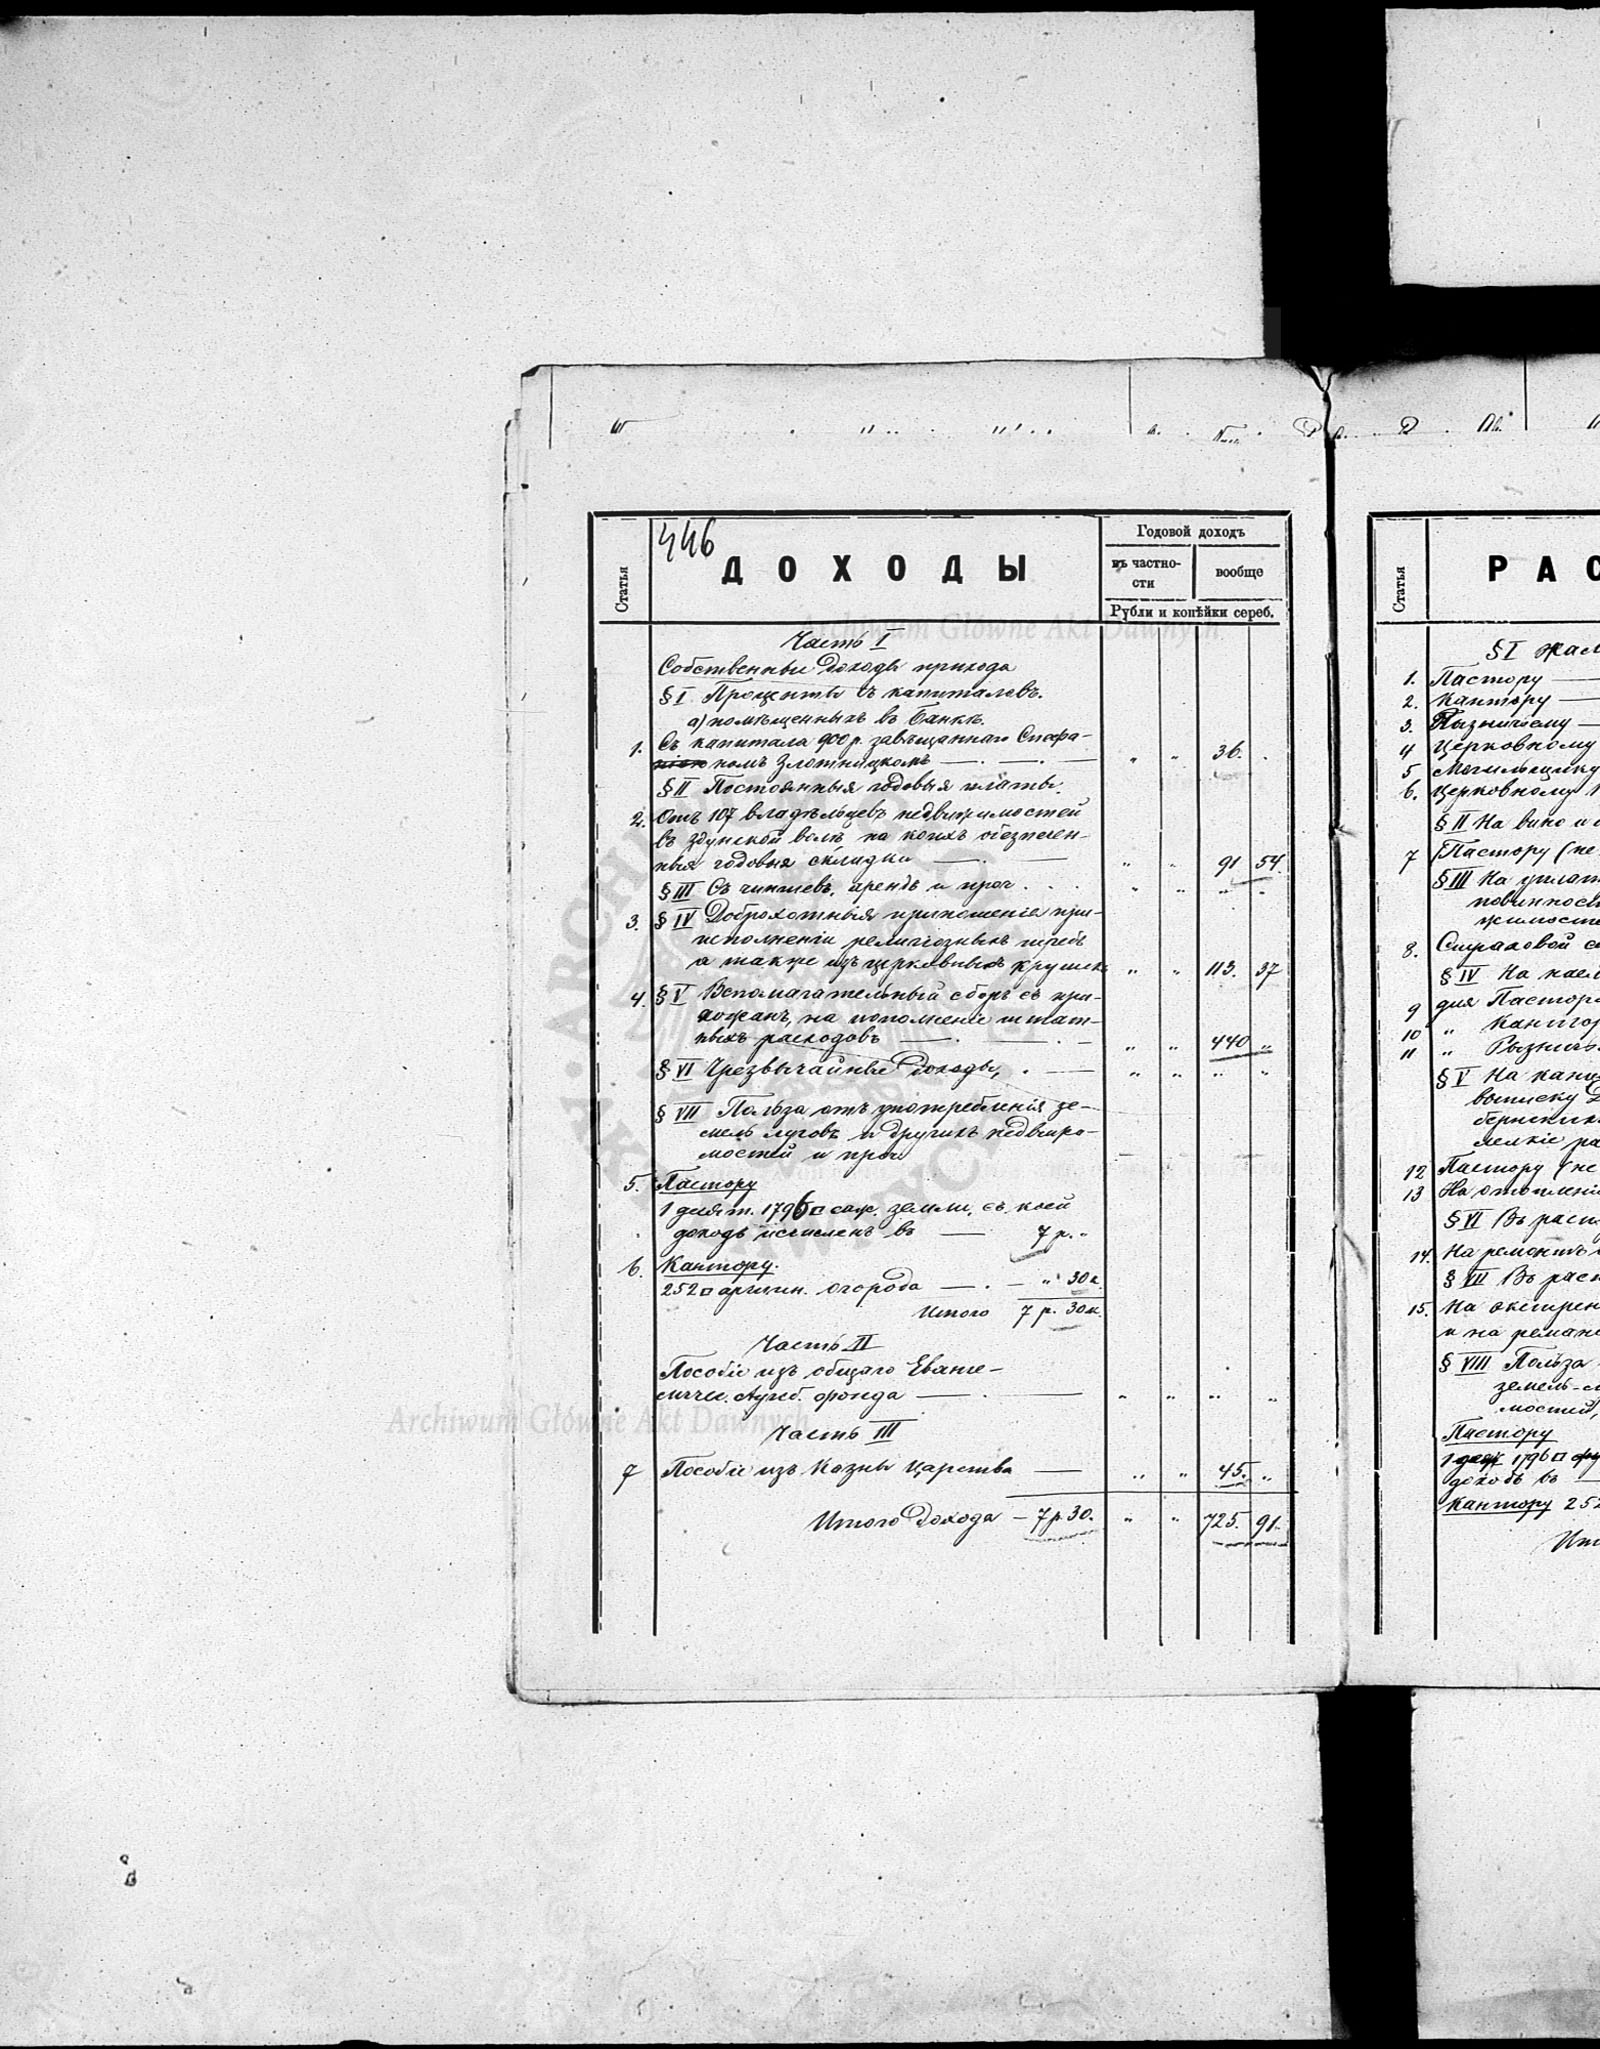 446
Статья
ДОХОДЫ
Годовой доходъ
въ частно-
сти
вообще
Рубли и копѣйки сереб.
Archiwum Główne Akt Dawnych
Часть I
Собственные доходы прихода
§ I Проценты съ капиталовъ.
а) помѣщенныхъ въ Банкѣ.
1. Съ капитала 900 р. завѣщаннаго Стефа-
номъ Злотницкомъ — . — . — " " 36. .
§ II Постоянныя годовыя платы.
2. Отъ 107 владѣльцевъ недвижимостей
въ Здунской волѣ на коихъ обезпечен-
ныя годовыя складки — . — " " 91 54.
§ III Съ чиншевъ, арендъ и проч . . . " " " "
3. § IV Доброхотныя приношенія при
исполненіи религіозныхъ требъ
а также изъ церковныхъ кружекъ " " 113. 37
4. § V Вспомагательный сборъ съ при-
хожанъ, на пополненіе штат-
ныхъ расходовъ — . — . — " " 440 "
§ VI Чрезвычайные доходы, . — " " " "
§ VII Польза отъ употребленія зе-
мель луговъ и другихъ недвижи-
мостей и проч
5. Пастору
1 десят. 1796 □ саж. земли, съ коей
доходъ исчисленъ въ — 7 р. "
6. Кантору.
252 □ аршин. огорода — . — " 30 к.
Итого 7 р. 30 к.
Часть II
Пособіе изъ общаго Еванге-
лическ. Аугсб. фонда — . — " " " "
Archiwum Główne Akt Dawnych
Часть III
7 Пособіе изъ Казны Царства — " " 45. "
Итого дохода — 7 р 30. " " 725. 91.
Статья
РАС
§ I Жал
1. Пастору —
2. Кантору —
3. Ризничему —
4 Церковному
5 Могильщику
6. Церковному
§ II На вино и
7 Пастору (не
§ III На уплат
повинност
жимосте
8. Страховой с
§ IV На наем
9 для Пастора
10 " Кантор
11 " Ризнич
§ V На канц
выписку
мелкіе ра
12 Пастору (не
13 На отопленіе
§ VI Въ расп
14. На ремонтъ
§ VII Въ расп
15. На экстрен
и на ремон
§ VIII Польза
земель-л
мостей,
Пастору
1 1796 □
доходъ въ —
Кантору 252
Ито